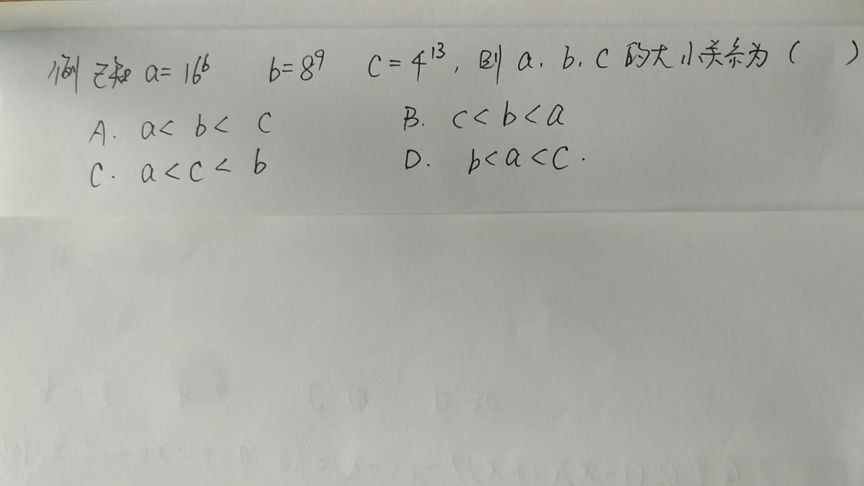 例 已知 a=16⁶ b=8⁹ c=4¹³, 则 a. b. c 的大小关系为 ( )
A. a< b< c B. c<b<a
C. a<c< b D. b<a<c.